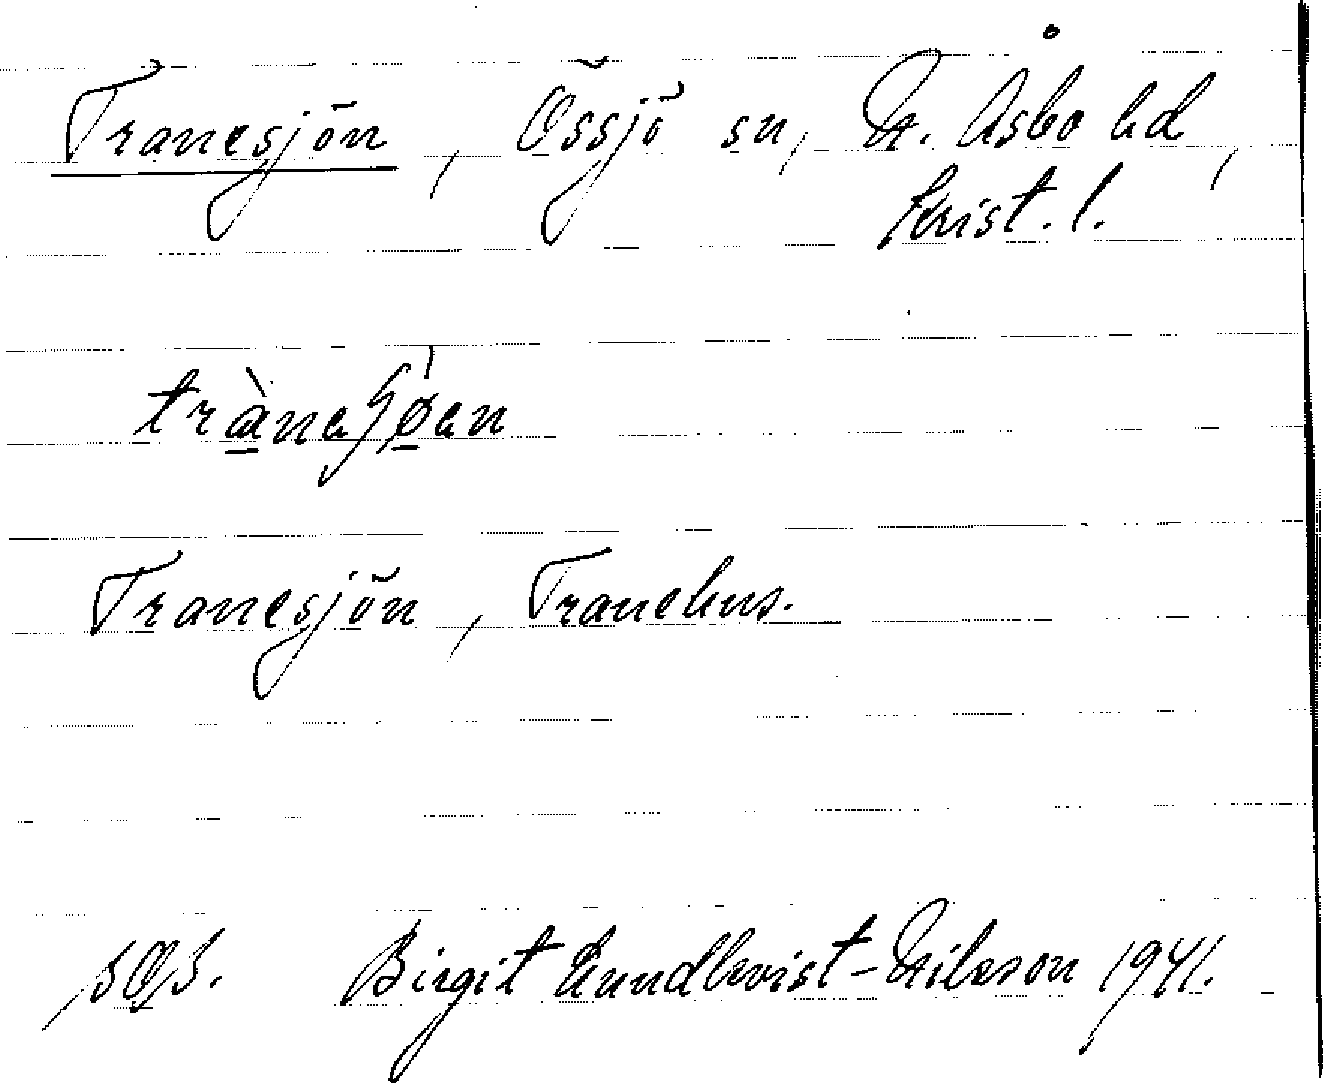 Tranesjön, Össjö sn, N. Åsbo hd,
Krist. l.
Tranesjön, Tranehus.
Birgit Lundkvist-Nilsson 1941.